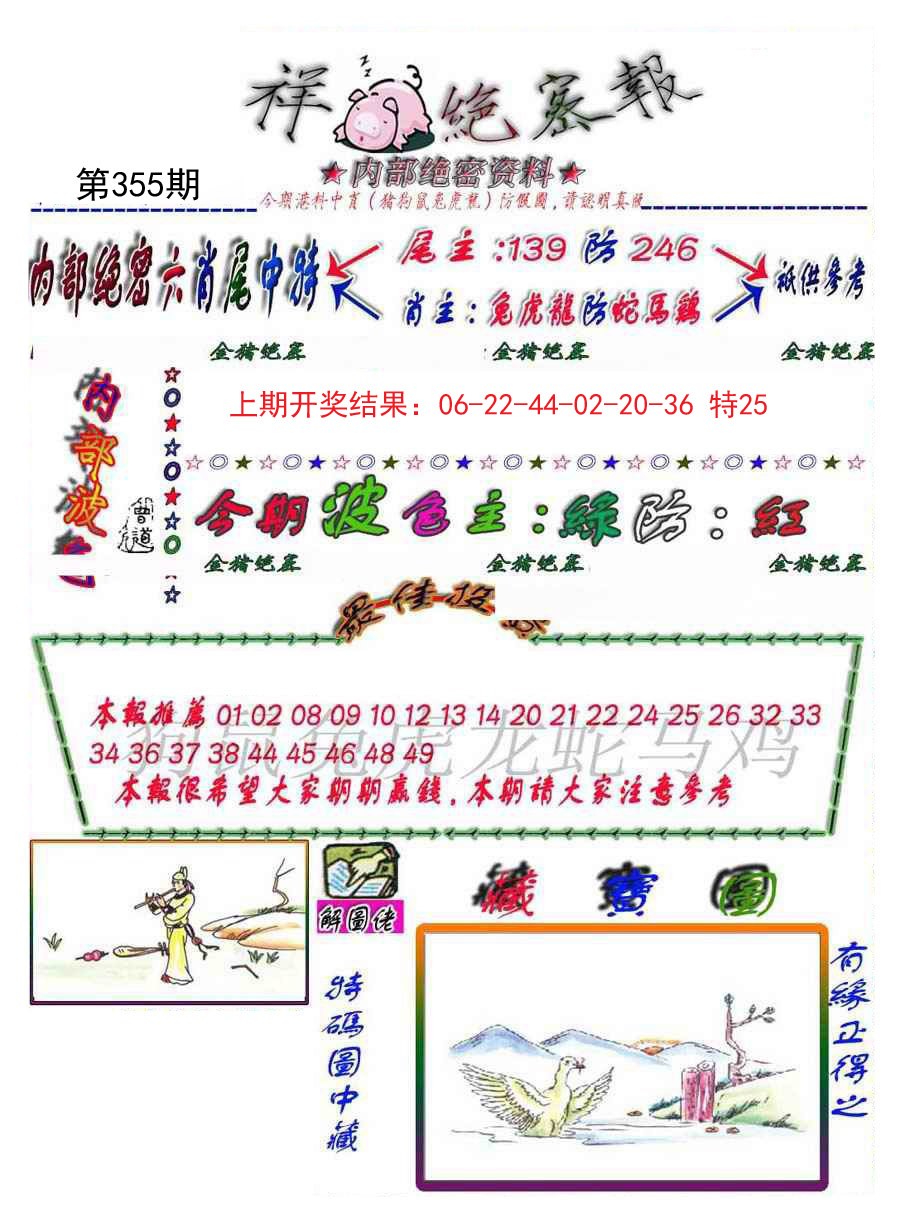 祥 絶密報
★内部绝密资料★
第355期
今期港料中肖（猪狗鼠兔虎龍）防假圖，請認明真版
内部绝密六肖尾中特
尾主:139防246
肖主:兔虎龍防蛇馬鷄
衹供參考
金猪绝密 金猪绝密 金猪绝密
内部波色
上期开奖结果：06-22-44-02-20-36 特25
曾道
今期波色主:綠防:紅
金猪绝密 金猪绝密 金猪绝密
最佳投
狗鼠兔虎龙蛇马鸡
本報推薦 01 02 08 09 10 12 13 14 20 21 22 24 25 26 32 33
34 36 37 38 44 45 46 48 49
本報很希望大家期期贏錢,本期請大家注意參考
解圖佬
藏寶圖
特碼圖中藏
有緣正得之